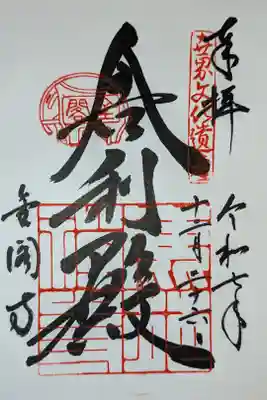 奉拝
世界文化遺産
令和七年
十二月二十六日
舎利殿
金閣寺